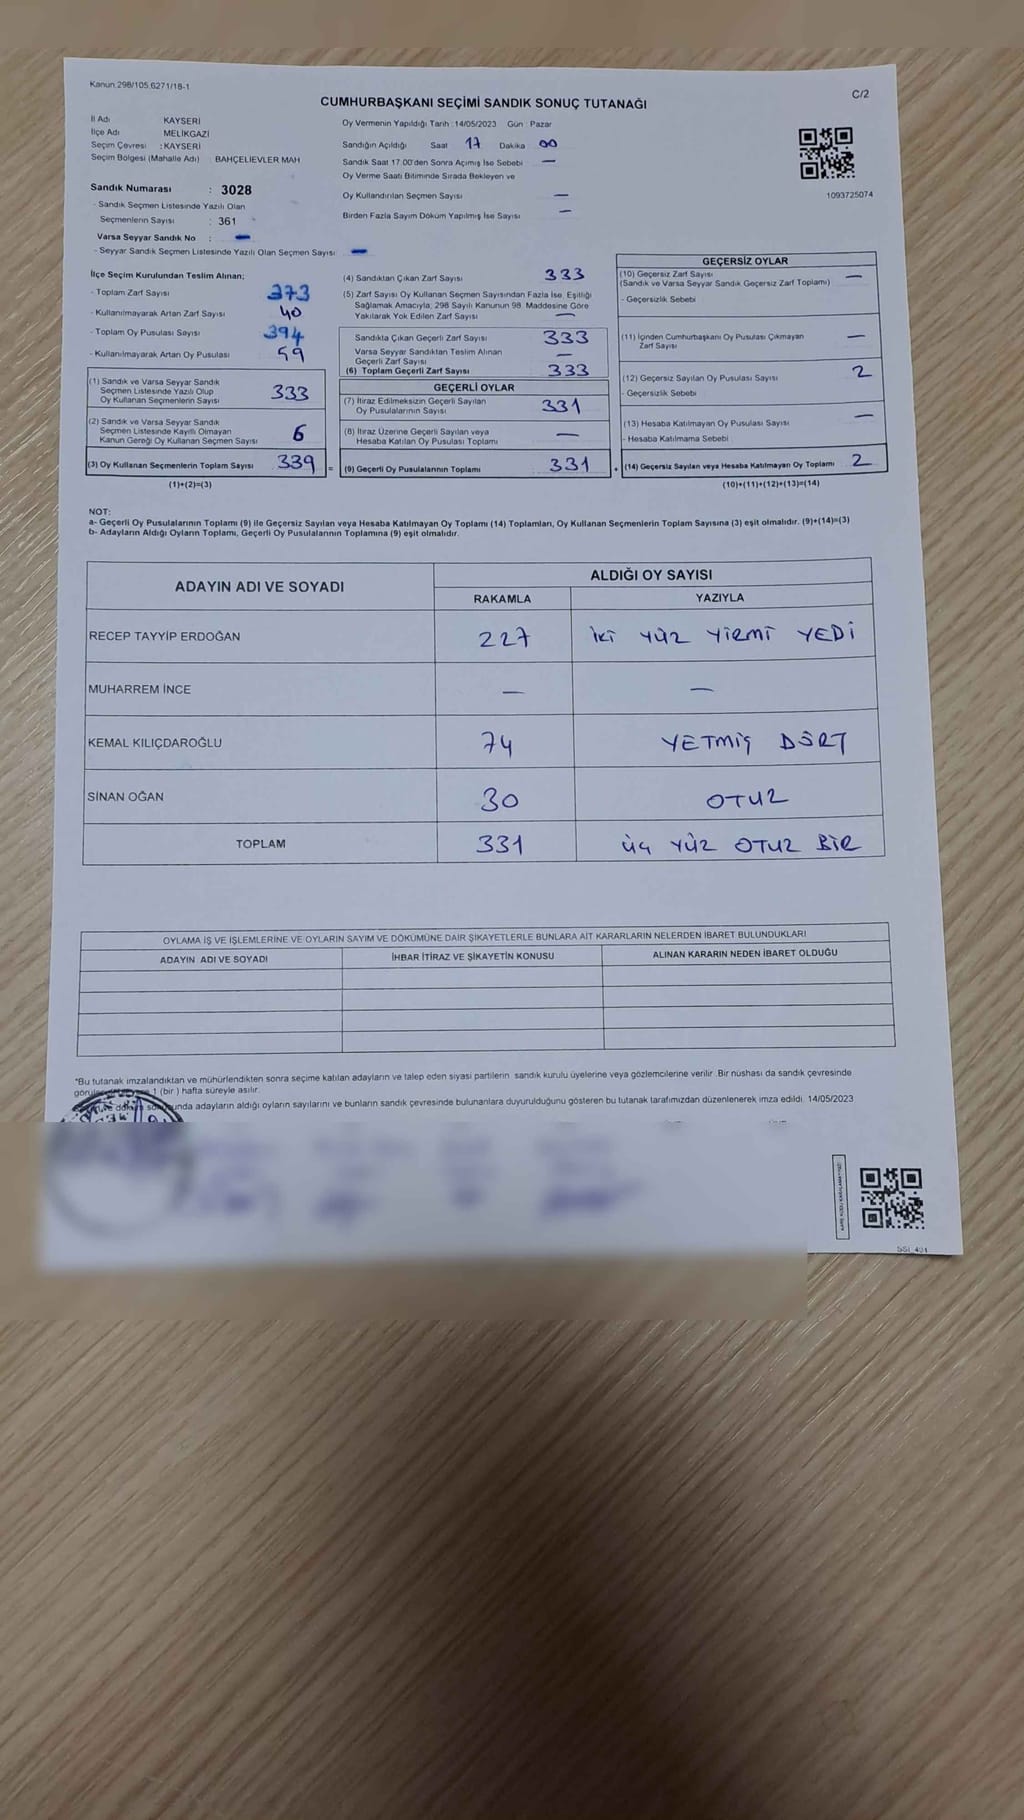 Kanun.298/105.6271/18-1
C/2
CUMHURBAŞKANI SEÇİMİ SANDIK SONUÇ TUTANAĞI
İl Adı KAYSERİ
İlçe Adı MELİKGAZİ
Seçim Çevresi : KAYSERİ
Seçim Bölgesi (Mahalle Adı) : BAHÇELİEVLER MAH
Sandık Numarası : 3028
- Sandık Seçmen Listesinde Yazılı Olan
Seçmenlerin Sayısı : 361
Varsa Seyyar Sandık No : —
- Seyyar Sandık Seçmen Listesinde Yazılı Olan Seçmen Sayısı —
Oy Vermenin Yapıldığı Tarih :14/05/2023 Gün : Pazar
Sandığın Açıldığı Saat 17 Dakika 00
Sandık Saat 17.00'den Sonra Açımış İse Sebebi —
Oy Verme Saati Bitiminde Sırada Bekleyen ve
Oy Kullandırılan Seçmen Sayısı —
Birden Fazla Sayım Döküm Yapılmış İse Sayısı —
1093725074
İlçe Seçim Kurulundan Teslim Alınan;
- Toplam Zarf Sayısı 373
- Kullanılmayarak Artan Zarf Sayısı 40
- Toplam Oy Pusulası Sayısı 394
- Kullanılmayarak Artan Oy Pusulası 59
(1) Sandık ve Varsa Seyyar Sandık
Seçmen Listesinde Yazılı Olup
Oy Kullanan Seçmenlerin Sayısı 333
(2) Sandık ve Varsa Seyyar Sandık
Seçmen Listesinde Kayıtlı Olmayan
Kanun Gereği Oy Kullanan Seçmen Sayısı 6
(3) Oy Kullanan Seçmenlerin Toplam Sayısı 339 =
(1)+(2)=(3)
(4) Sandıktan Çıkan Zarf Sayısı 333
(5) Zarf Sayısı Oy Kullanan Seçmen Sayısından Fazla İse, Eşitliği
Sağlamak Amacıyla; 298 Sayılı Kanunun 98. Maddesine Göre
Yakılarak Yok Edilen Zarf Sayısı —
Sandıkta Çıkan Geçerli Zarf Sayısı 333
Varsa Seyyar Sandıktan Teslim Alınan
Geçerli Zarf Sayısı —
(6) Toplam Geçerli Zarf Sayısı 333
GEÇERLİ OYLAR
(7) İtiraz Edilmeksizin Geçerli Sayılan
Oy Pusulalarının Sayısı 331
(8) İtiraz Üzerine Geçerli Sayılan veya
Hesaba Katılan Oy Pusulası Toplamı —
(9) Geçerli Oy Pusulalarının Toplamı 331 +
GEÇERSİZ OYLAR
(10) Geçersiz Zarf Sayısı —
(Sandık ve Varsa Seyyar Sandık Geçersiz Zarf Toplamı)
- Geçersizlik Sebebi
(11) İçinden Cumhurbaşkanı Oy Pusulası Çıkmayan —
Zarf Sayısı
(12) Geçersiz Sayılan Oy Pusulası Sayısı 2
- Geçersizlik Sebebi
(13) Hesaba Katılmayan Oy Pusulası Sayısı —
- Hesaba Katılmama Sebebi
(14) Geçersiz Sayılan veya Hesaba Katılmayan Oy Toplamı 2
(10)+(11)+(12)+(13)=(14)
NOT:
a- Geçerli Oy Pusulalarının Toplamı (9) ile Geçersiz Sayılan veya Hesaba Katılmayan Oy Toplamı (14) Toplamları, Oy Kullanan Seçmenlerin Toplam Sayısına (3) eşit olmalıdır. (9)+(14)=(3)
b- Adayların Aldığı Oyların Toplamı, Geçerli Oy Pusulalarının Toplamına (9) eşit olmalıdır.
ADAYIN ADI VE SOYADI ALDIĞI OY SAYISI
RAKAMLA YAZIYLA
RECEP TAYYİP ERDOĞAN 227 iki yüz yirmi YEDİ
MUHARREM İNCE — —
KEMAL KILIÇDAROĞLU 74 YETMİŞ DÖRT
SİNAN OĞAN 30 OTUZ
TOPLAM 331 üç yüz OTUZ BİR
OYLAMA İŞ VE İŞLEMLERİNE VE OYLARIN SAYIM VE DÖKÜMÜNE DAİR ŞİKAYETLERLE BUNLARA AİT KARARLARIN NELERDEN İBARET BULUNDUKLARI
ADAYIN ADI VE SOYADI İHBAR İTİRAZ VE ŞİKAYETİN KONUSU ALINAN KARARIN NEDEN İBARET OLDUĞU
*Bu tutanak imzalandıktan ve mühürlendikten sonra seçime katılan adayların ve talep eden siyasi partilerin sandık kurulu üyelerine veya gözlemcilerine verilir. Bir nüshası da sandık çevresinde
1 (bir ) hafta süreyle asılır.
adayların aldığı oyların sayılarını ve bunların sandık çevresinde bulunanlara duyurulduğunu gösteren bu tutanak tarafımızdan düzenlenerek imza edildi. 14/05/2023